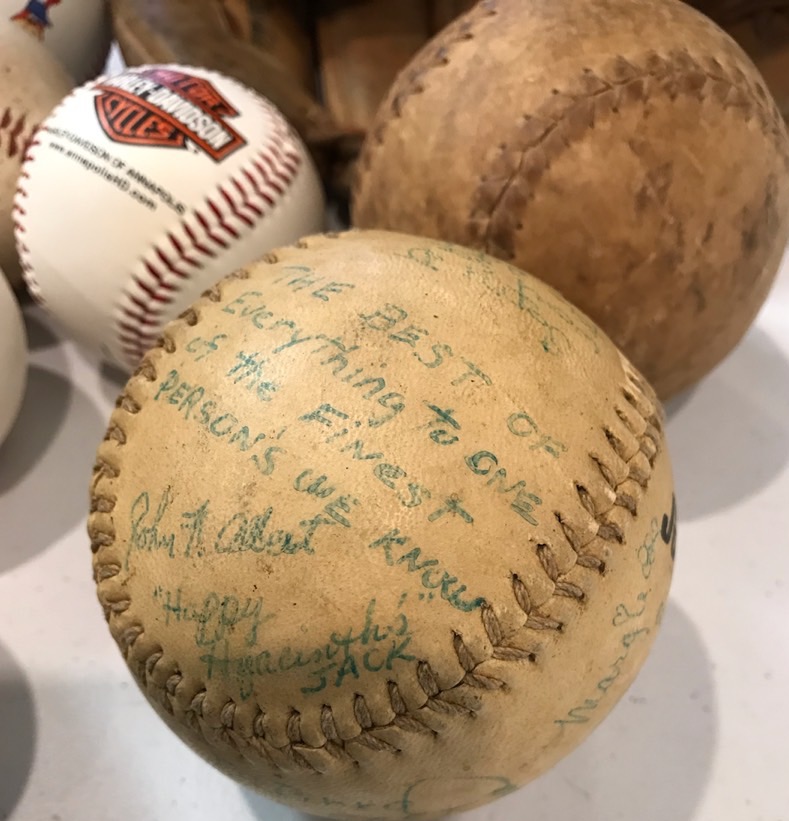 HARLEY-DAVIDSON
CYCLES
HARLEY-DAVIDSON OF ANNAPOLIS
www.annapolisHD.com
THE BEST OF
Everything to ONE
of the FiNEST
PERSON'S WE KNOW
John N. Albert
"Happy
Hyacinth's"
JACK